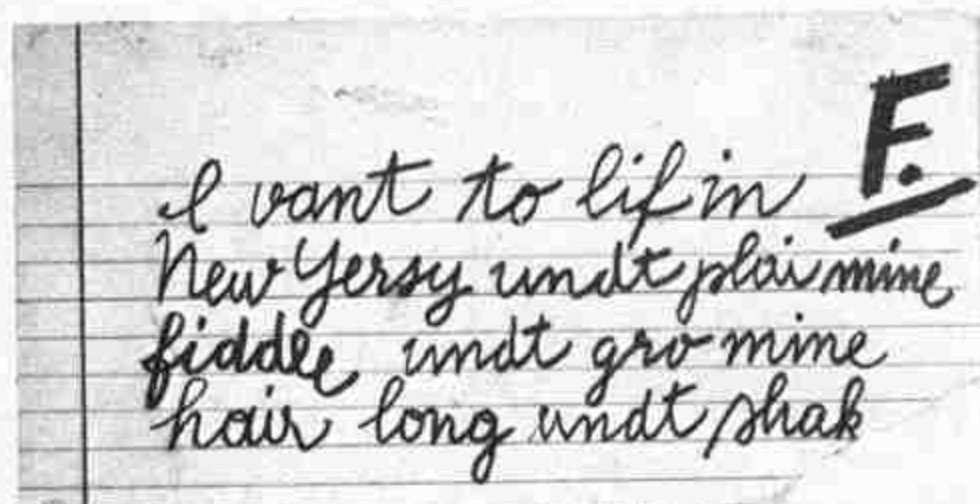 F.
I vant to lif in
New Yersy undt plai mine
fiddle undt gro mine
hair long undt shak